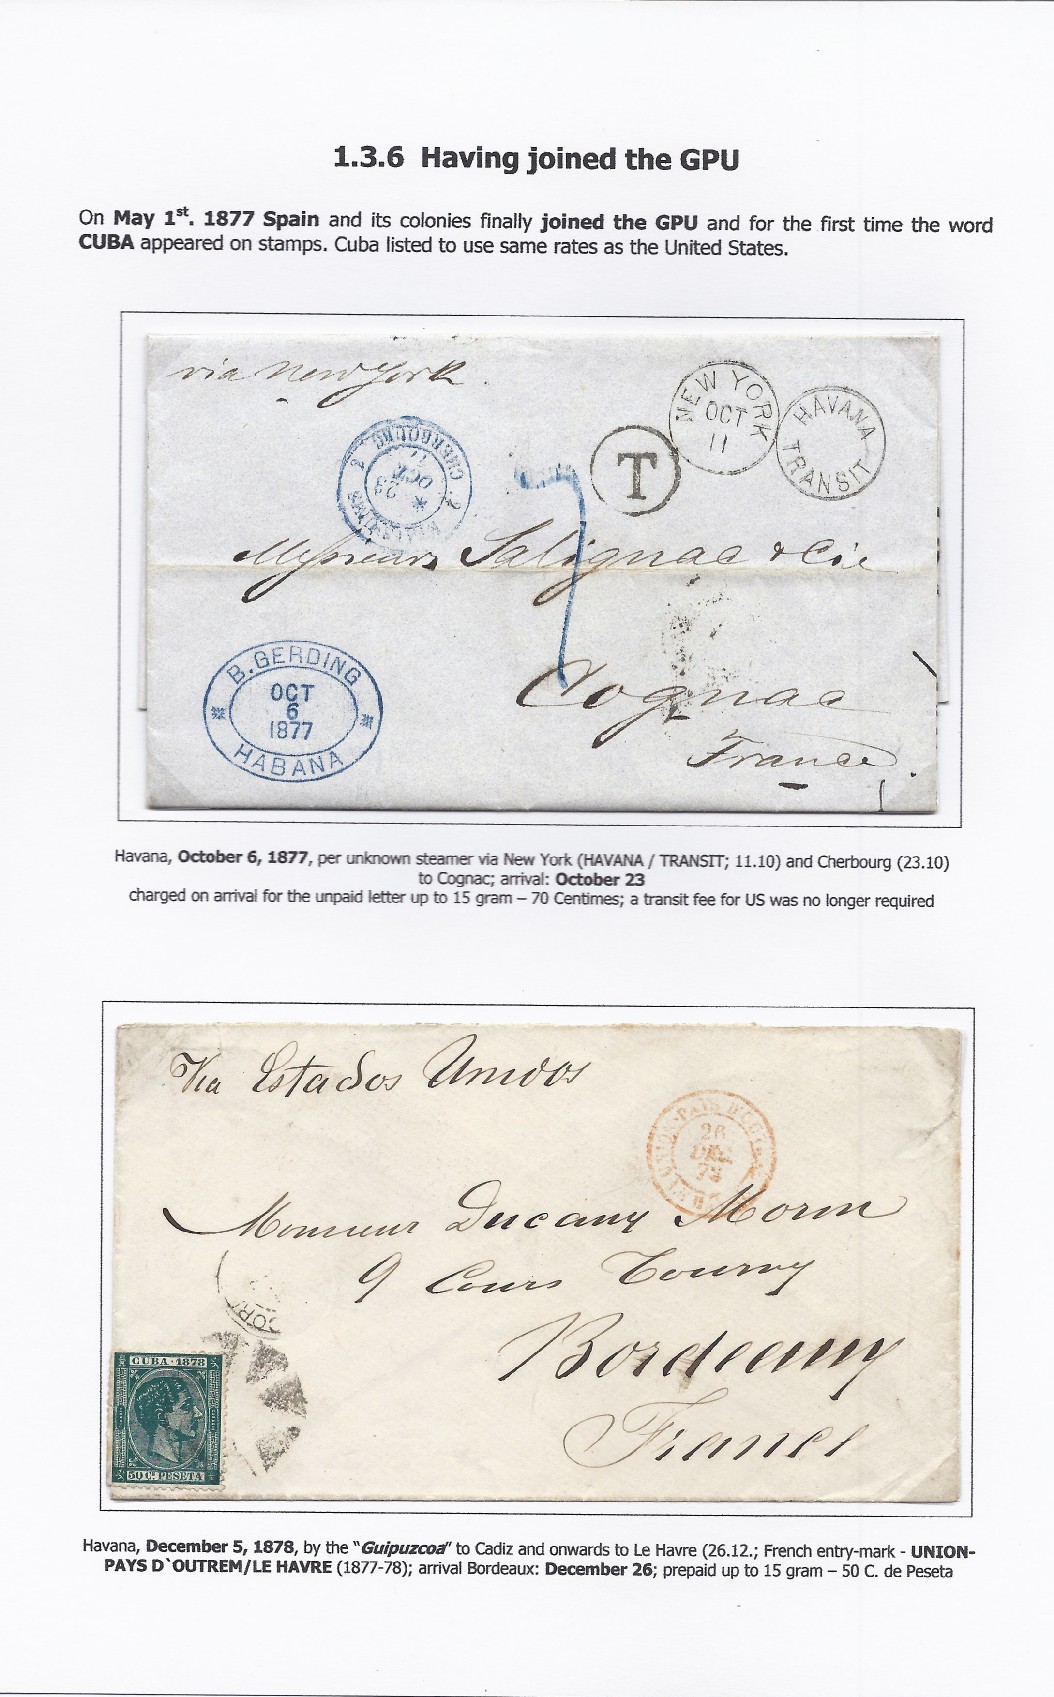 1.3.6 Having joined the GPU
On May 1st. 1877 Spain and its colonies finally joined the GPU and for the first time the word
CUBA appeared on stamps. Cuba listed to use same rates as the United States.
via New York
NEW YORK
OCT
11
HAVANA
TRANSIT
T
CHERBOURG
OCT
23
7
Messieurs Salignac & Cie
Cognac
France
B. GERDING
OCT
6
1877
HABANA
Havana, October 6, 1877, per unknown steamer via New York (HAVANA / TRANSIT; 11.10) and Cherbourg (23.10)
to Cognac; arrival: October 23
charged on arrival for the unpaid letter up to 15 gram – 70 Centimes; a transit fee for US was no longer required
Via Estados Unidos
UNION-PAYS D'
26
DEC
Monsieur Ducany Morin
9 Cours Tourny
Bordeaux
France
CUBA · 1878
50 Cs PESETA
Havana, December 5, 1878, by the "Guipuzcoa" to Cadiz and onwards to Le Havre (26.12.; French entry-mark - UNION-
PAYS D`OUTREM/LE HAVRE (1877-78); arrival Bordeaux: December 26; prepaid up to 15 gram – 50 C. de Peseta